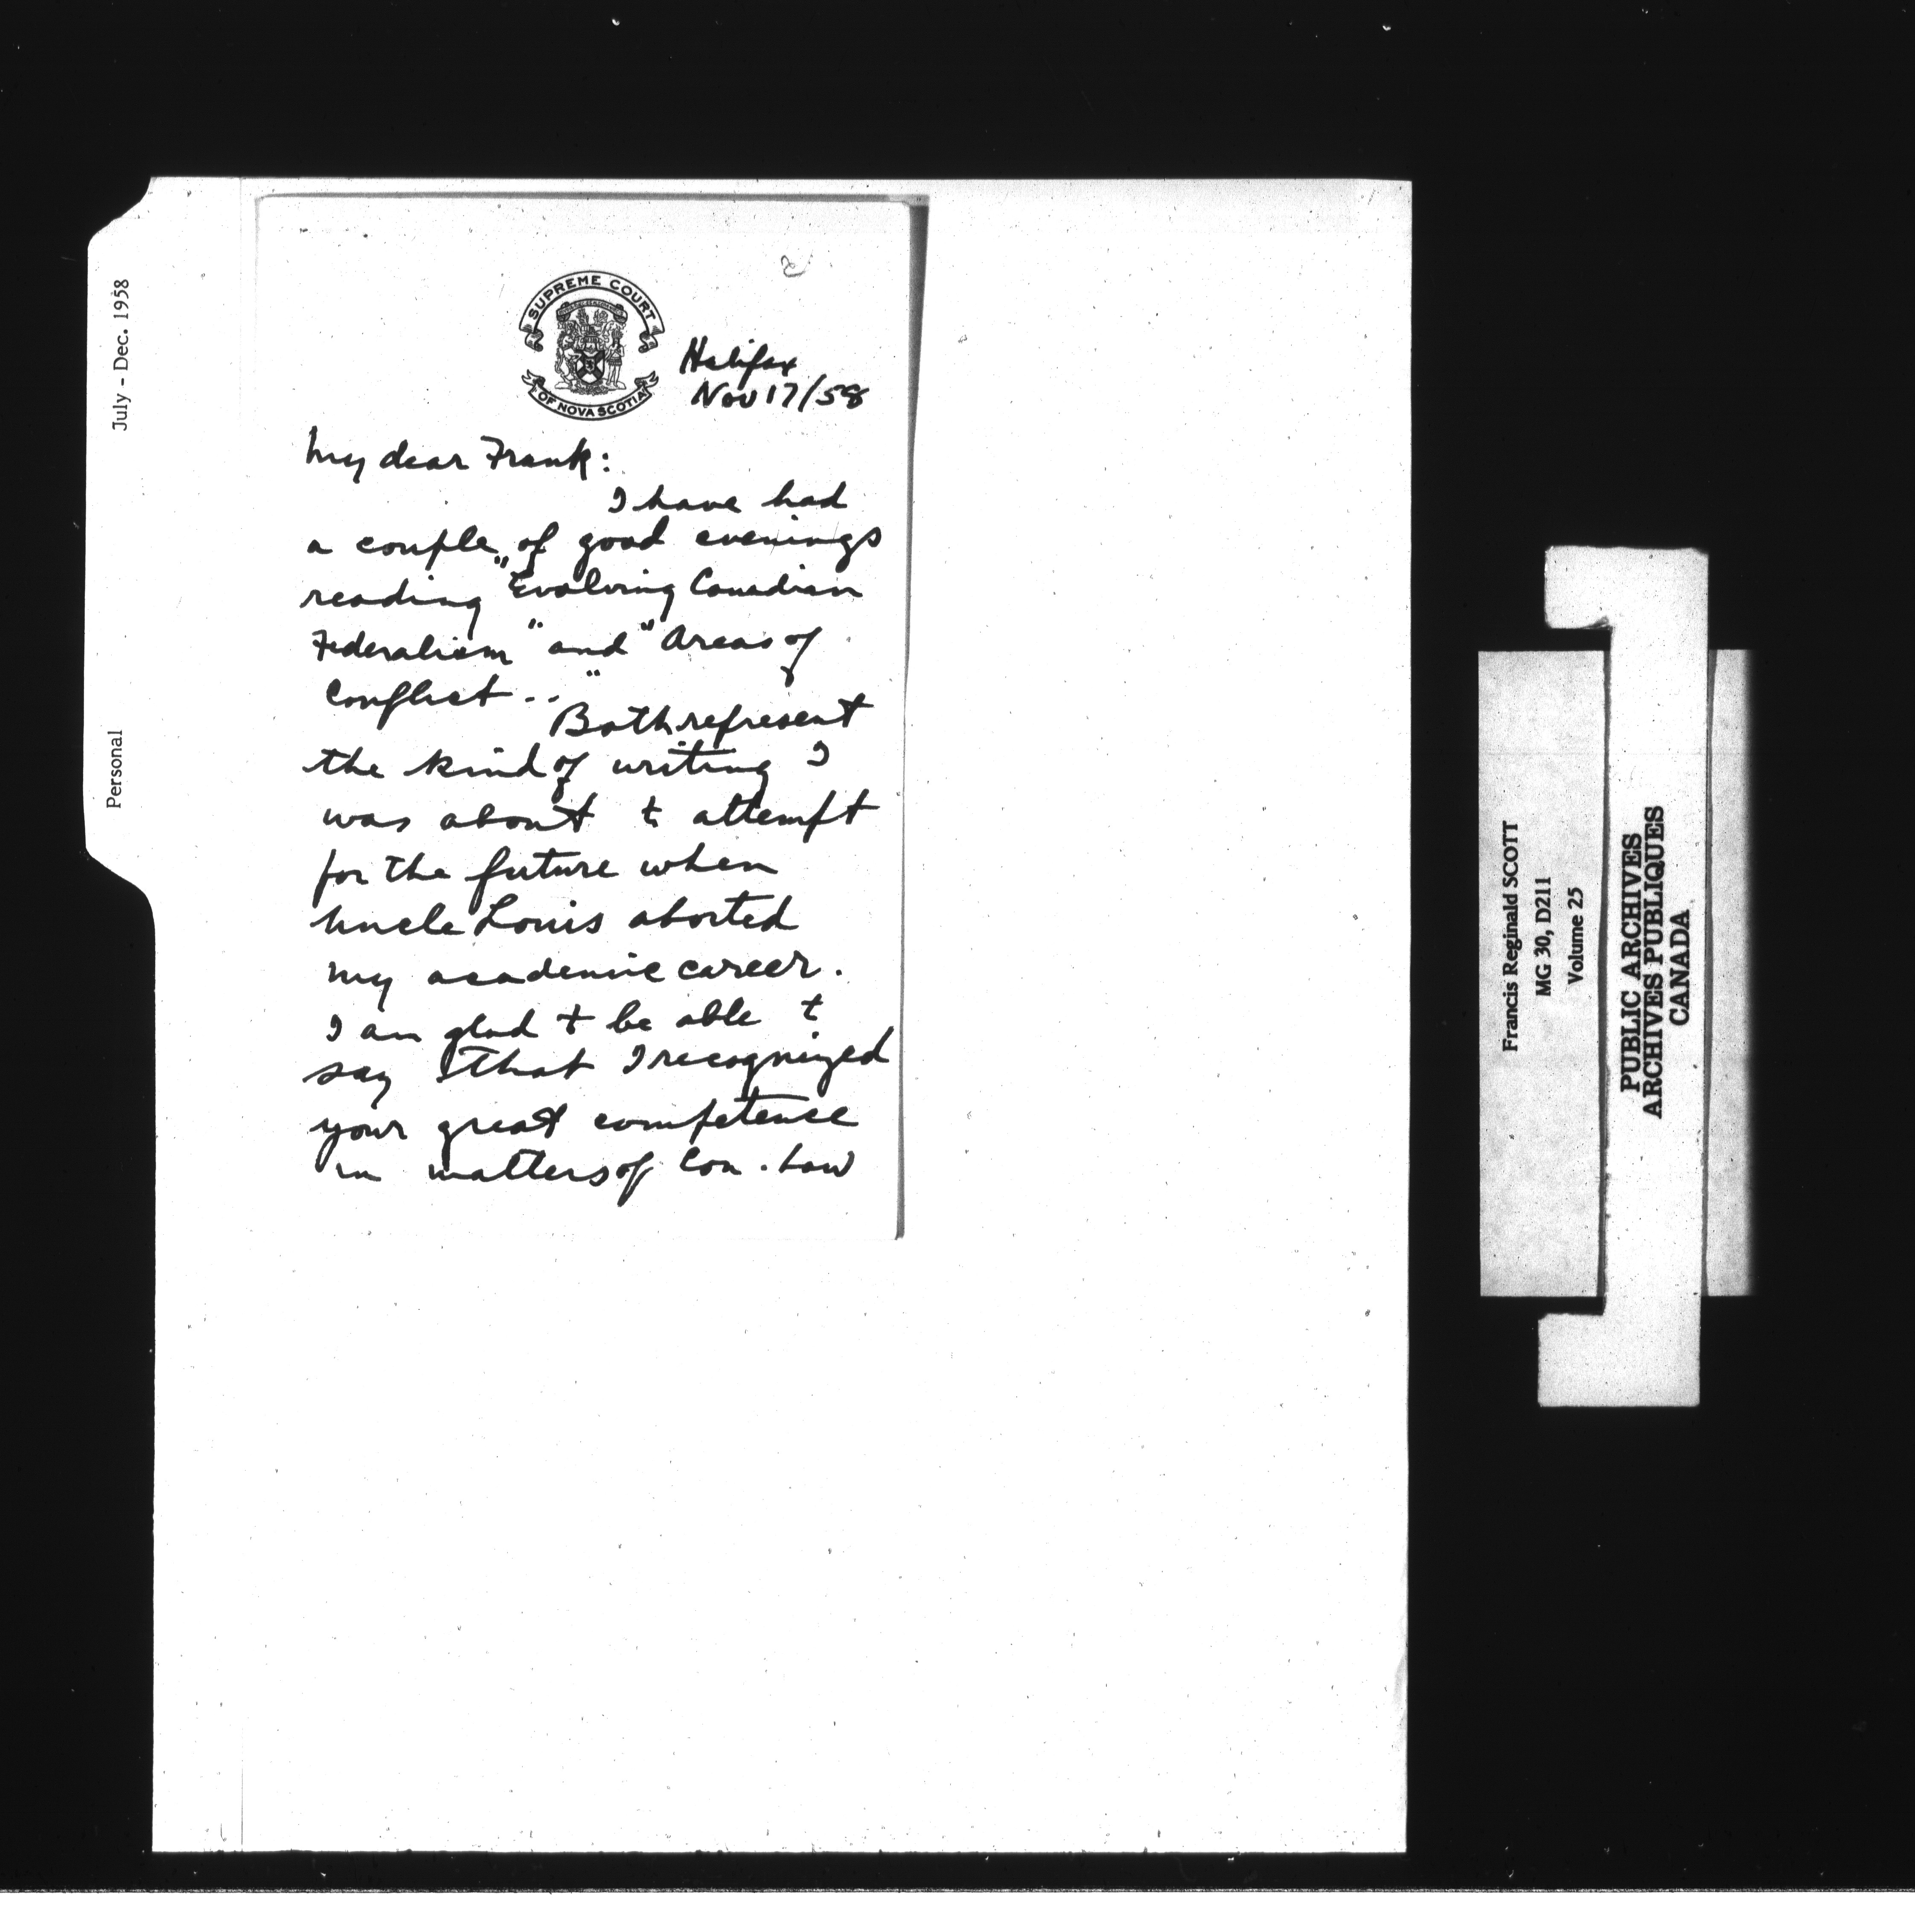 July - Dec. 1958
Personal
SUPREME COURT
OF NOVA SCOTIA
Halifax
Nov 17/58
My dear Frank:
I have had
a couple of good evenings
reading "Evolving Canadian
Federalism" and "Areas of
Conflict .. "
Both represent
the kind of writing I
was about to attempt
for the future when
Uncle Louis aborted
my academic career.
I am glad to be able to
say that I recognized
your great competence
in matters of Con. Law
Francis Reginald SCOTT
MG 30, D211
Volume 25
PUBLIC ARCHIVES
ARCHIVES PUBLIQUES
CANADA